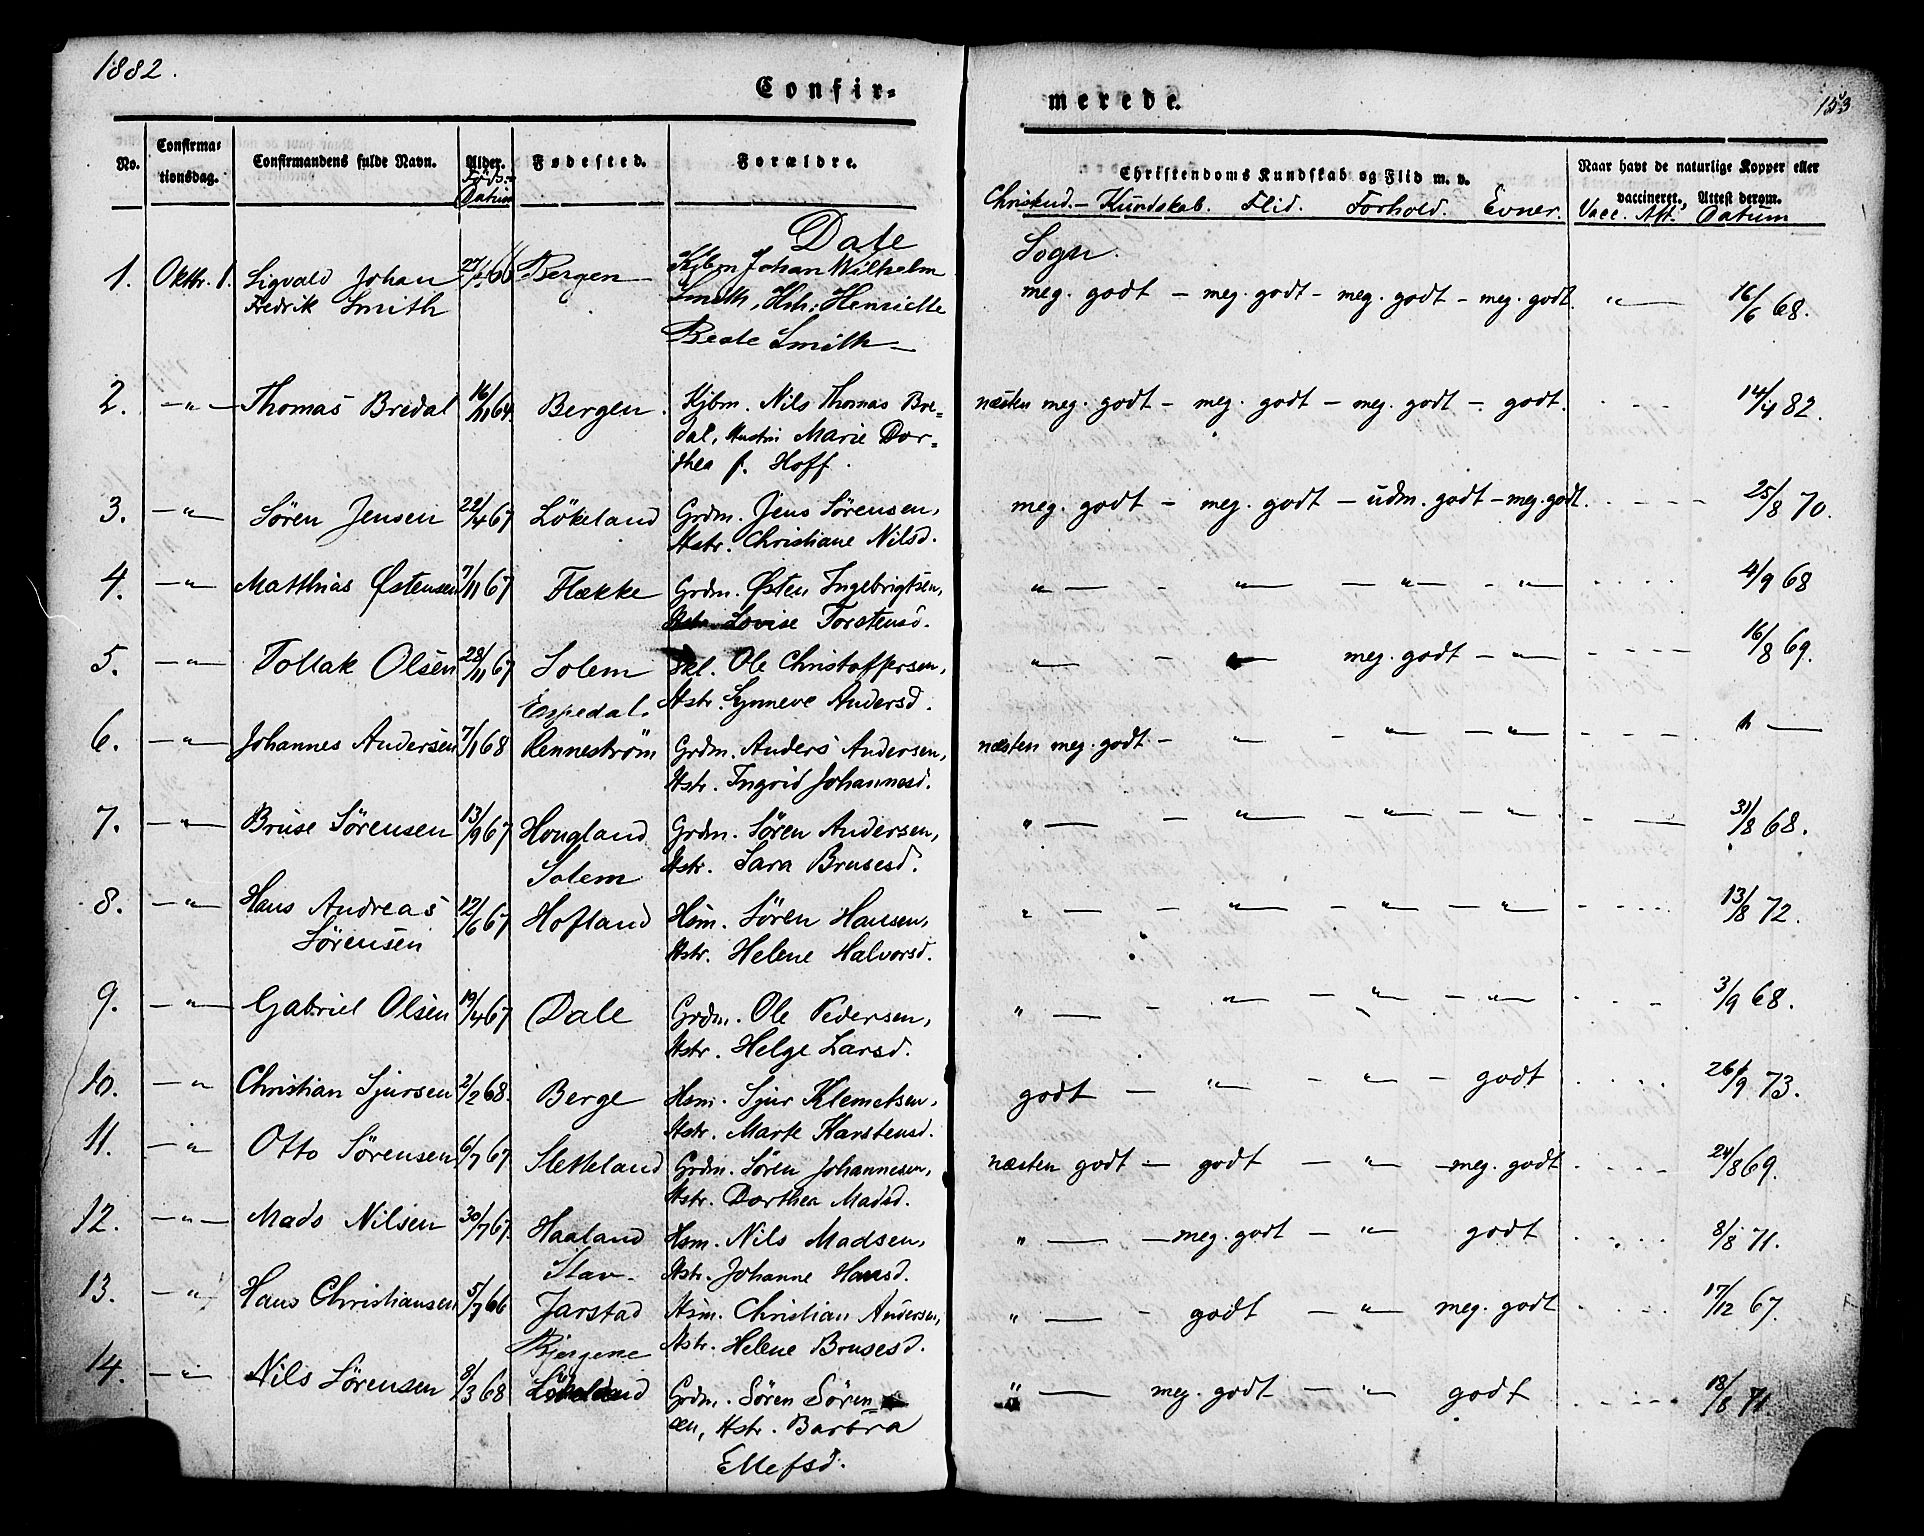 1882.
Confir-
merede.
153
No.
Confirma-
tionsdag.
Confirmandens fulde Navn.
Alder.
Føds.-
Datum
Fødested.
Forældre.
Christendoms Kundskab og Flid m. v.
Christend. - Kundskab. Flid. Forhold. Evner.
Naar havt de naturlige Kopper eller
vaccineret, Attest derom.
Vacc. Att. Datum
Dale
Sogn.
1. Oktbr. 1. Sigvald Johan Bergen Kjbm Johan Wilhelm
Fredrik Smith Smith, Hstr. Henriette
Beate Smith
meg. godt - meg. godt - meg. godt - meg. godt. " 16/6 68.
2. - " - Thomas Bredal 16/11 64. Bergen. Kjbm. Nils Thomas Bre-
dal, Hustru Marie Dor-
thea f. Hoff.
næsten meg. godt - meg. godt - meg. godt - godt. 14/4 82.
3. - " - Søren Jensen 22/4 67 Løkeland Grdm. Jens Sørensen,
Hstr. Christiane Nilsd.
meg. godt - meg. godt - udm. godt - meg. godt. 25/8 70.
4. - " - Matthias Østensen 7/11 67 Flekke Grdm. Østen Ingebrigtsen,
Hstr. Lovise Torstensd.
" - " - " - " 4/9 68
5. - " - Tollak Olsen 28/11 67 Solem Ole Christoffersen,
Hstr. Synneve Andersd.
" - " meg. godt - " 16/8 69.
Espedal.
6. - " - Johannes Andersen 7/1 68 Renneström Grdm. Anders Andersen,
Hstr. Ingrid Johannesd.
næsten meg. godt - " - " - " "
7. - " - Bruse Sørensen 13/9 67 Hougland Grdm. Søren Andersen,
Hstr. Sara Brusesd.
" - " - " - " 31/8 68.
Solem
8. - " - Hans Andreas 12/6 67 Hofland Hsm. Søren Hansen,
Sørensen Hstr. Helene Halvorsd.
" - " - " - " 13/8 72.
9. - " - Gabriel Olsen 19/4 67 Dale Grdm. Ole Pedersen,
Hstr. Helge Larsd.
" - " - " - " 3/9 68.
10. - " Christian Sjursen 2/2 68. Berge Hsm. Sjur Klemetsen,
Hstr. Marte Karstensd.
godt - " - " - godt 26/9 73.
11. - " Otto Sørensen 6/7 67 Sletteland Grdm. Søren Johannesen,
Hstr. Dorthea Madsd.
næsten godt - godt - " - meg. godt 24/8 69.
12. - " - Mads Nilsen 30/7 67. Haaland Hsm. Nils Madsen,
Hstr. Johanne Hansd.
" - meg. godt - " godt 8/8 71.
Stav.
13. - " Hans Christiansen 5/7 66 Jarstad Hsm. Christian Andersen,
Hstr. Helene Brusesd.
" - godt - " meg. godt 17/12 67.
Bjergene
14. - " - Nils Sørensen 8/3 68 Løkeland Grdm. Søren Søren
sen, Hstr. Barbra
Ellefsd.
" meg. godt - " godt 18/8 71.